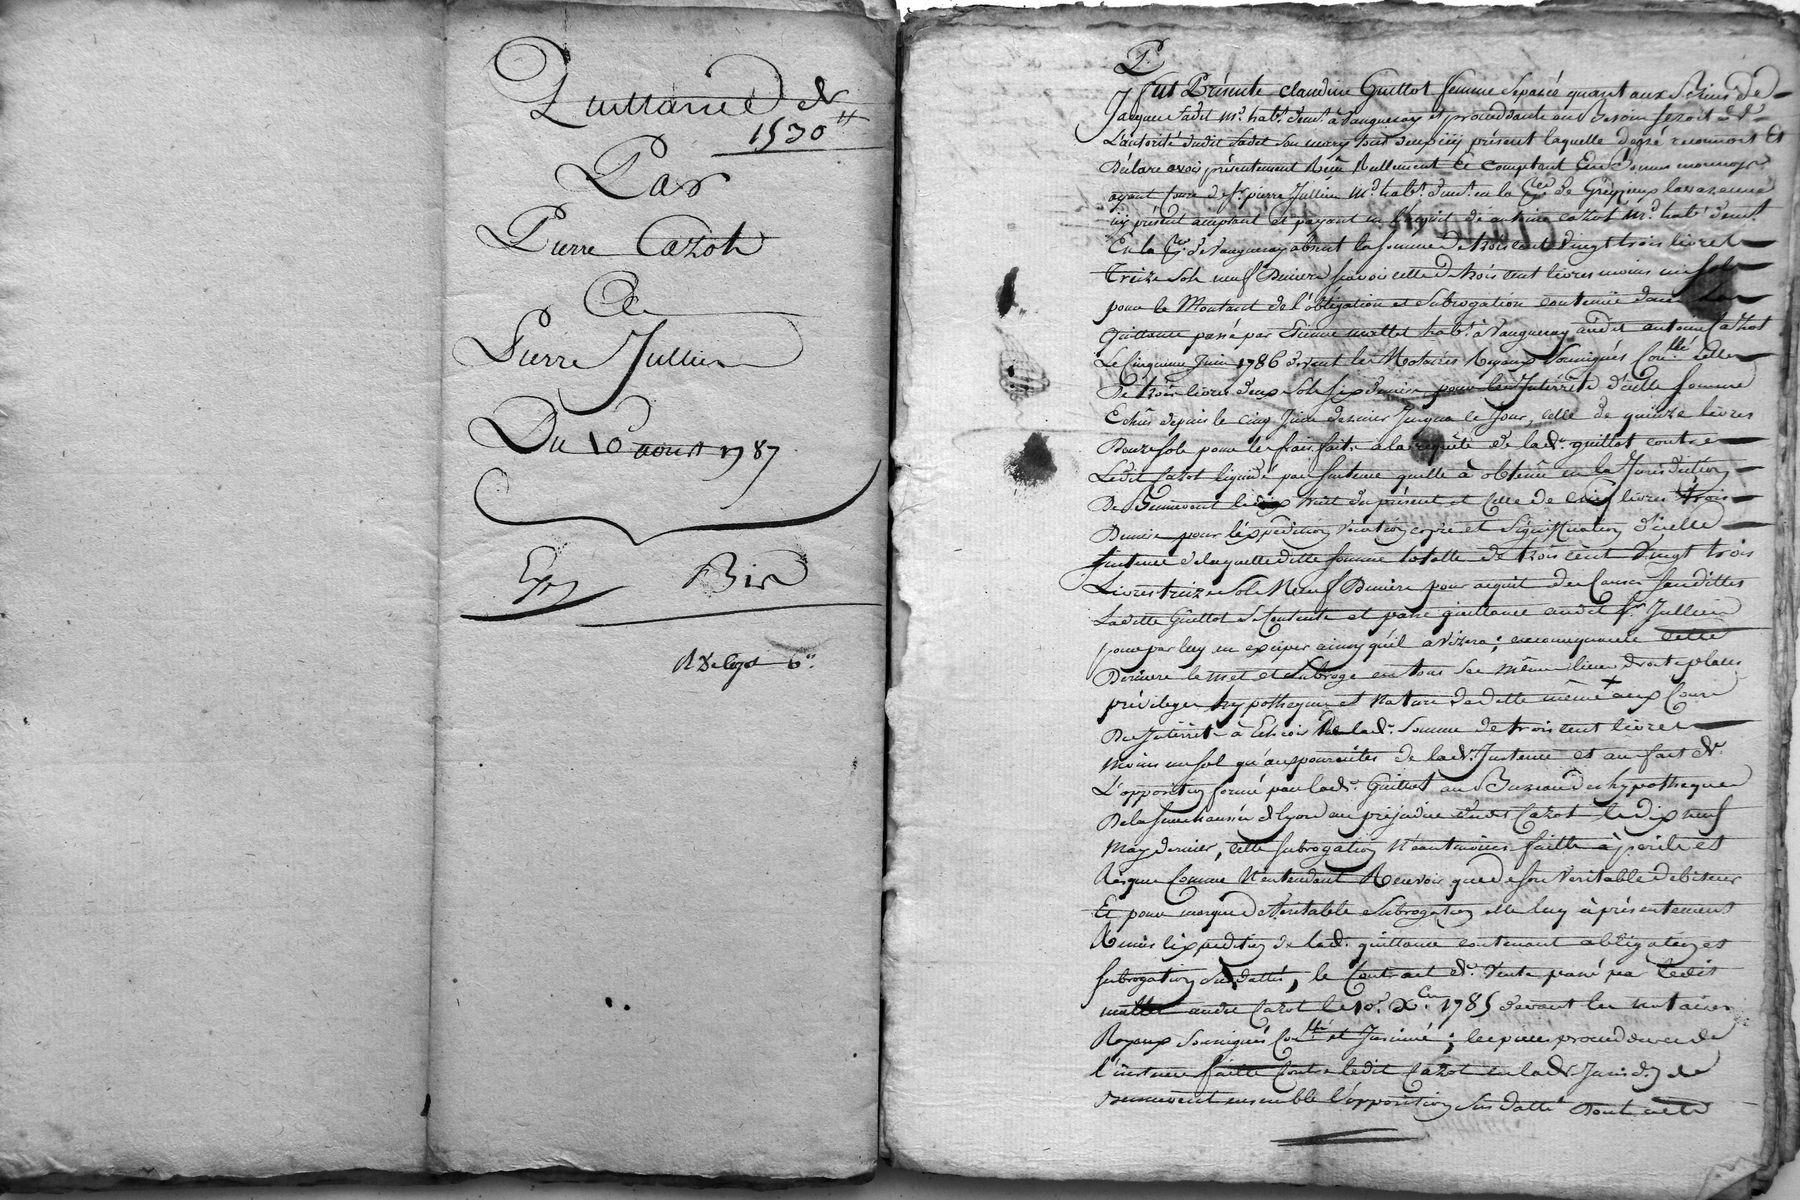 Quittance de
1530ᵗᵗ
Par
Pierre Cazot
A
Pierre Jullien
Du 10 aoust 1787
Exp. Bis
P.
fut Présente Claudine Guillot femme séparée quant aux Biens de
Jacque fadet mᵈ. habᵗ. demᵗ. à Vaugneray et procédante au Besoin seroit de
L'autorité dudit fadet son mary présent laquelle de gré reconnoit Et
Déclare avoir présentement Reçu Réellement Et Comptant En Bonne monnoye
ayant cours de Sʳ. pierre Jullien mᵈ. habᵗ. demᵗ. en la de Grézieux lavarenne
icy présent acceptant et payant en l'acquit de antoine cazot mᵈ. habᵗ. demᵗ.
En la de Vaugneray absent la somme de trois cent vingt trois livres
Treize Sols neuf Deniers sçavoir celle de trois cent livres moins un sol
pour le Montant de l'obligation et Subrogation contenue dans La
Quittance passé par Etienne mallet habᵗ. à Vaugneray audit antoine Cazot
Le Cinquieme Juin 1786 devant les Notaires Royaux Soussignés Conllé celle
De trois livres deux Sols six deniers pour les Intérêts d'icelle somme
Echûs depuis le cinq Juin dernier Jusqua ce Jour, celle de quinze livres
Douze sols pour les frais faits a la requête de lade. guillot contre
Ledit Cazot liquidé par sentence qu'elle à obtenüe en la Jurisdiction
De Bennevent le huit du présent et Celle de cinq livres trois
Deniers pour l'expédition copie et Signiffication d'icelle
sentence de laquelle ditte somme totalle de trois cent Vingt trois
Livres treize Sols Neuf Deniers pour acquit des Causes Susdittes
Laditte Guillot se Contente et passe quittance audit Sʳ. Jullien
pour par luy en exciper ainsy qu'il avisera; en conséquence cette
Derniere le met et Subroge en tous ses même lieux droits places
privileges hypotheques et Nature de dette même aux Cours
Des Intérêts à Echoir De lade. Somme de trois cent livres
Moins un sol qu'aux poursuites de lade. Instance et au fait de
L'opposition formé par lade. Guillot au Bureau des hypotheques
De la senechaussée de lyon au préjudice dudit Cazot le dix neuf
May dernier, cette subrogation Néantmoins faitte à perils et
Risques Comme N'entendant Recevoir que de son Veritable debiteur
Et pour marque de Véritable Subrogation elle luy à présentement
Remis l'expedition de lade. quittance contenant obligation et
Subrogation Susdattée, le Contrat de Vente passé par ledit
mallet audit Cazot le 10 Xbre. 1785 devant les notaires
Royaux Soussignés Conllé et Insinué; les pieces procedures de
l'instance faitte Contre ledit Cazot en lade. Jurisdon. de
Bennevent ensemble l'opposition Susdatté Dont acte